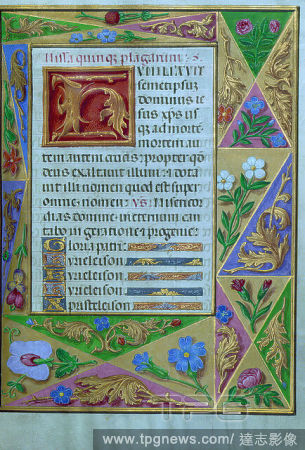 Missa quinq plagarum. S.
VMILIAVIT
semetipsuz
dominus ie
sus xp̄s usq̄
ad morte
mortem au
tem autem crucis: propter qđ
deus exaltauit illum: et dona
uit illi nomen quod est super
omne nomen: Vs. Misericor
dias domini in eternum can
tabo in generatione et progenie:
Gloria patri:
kyrieleison
kyrieleison
kyrieleison
Christeleison
www.tpgnews.com/ 達志影像